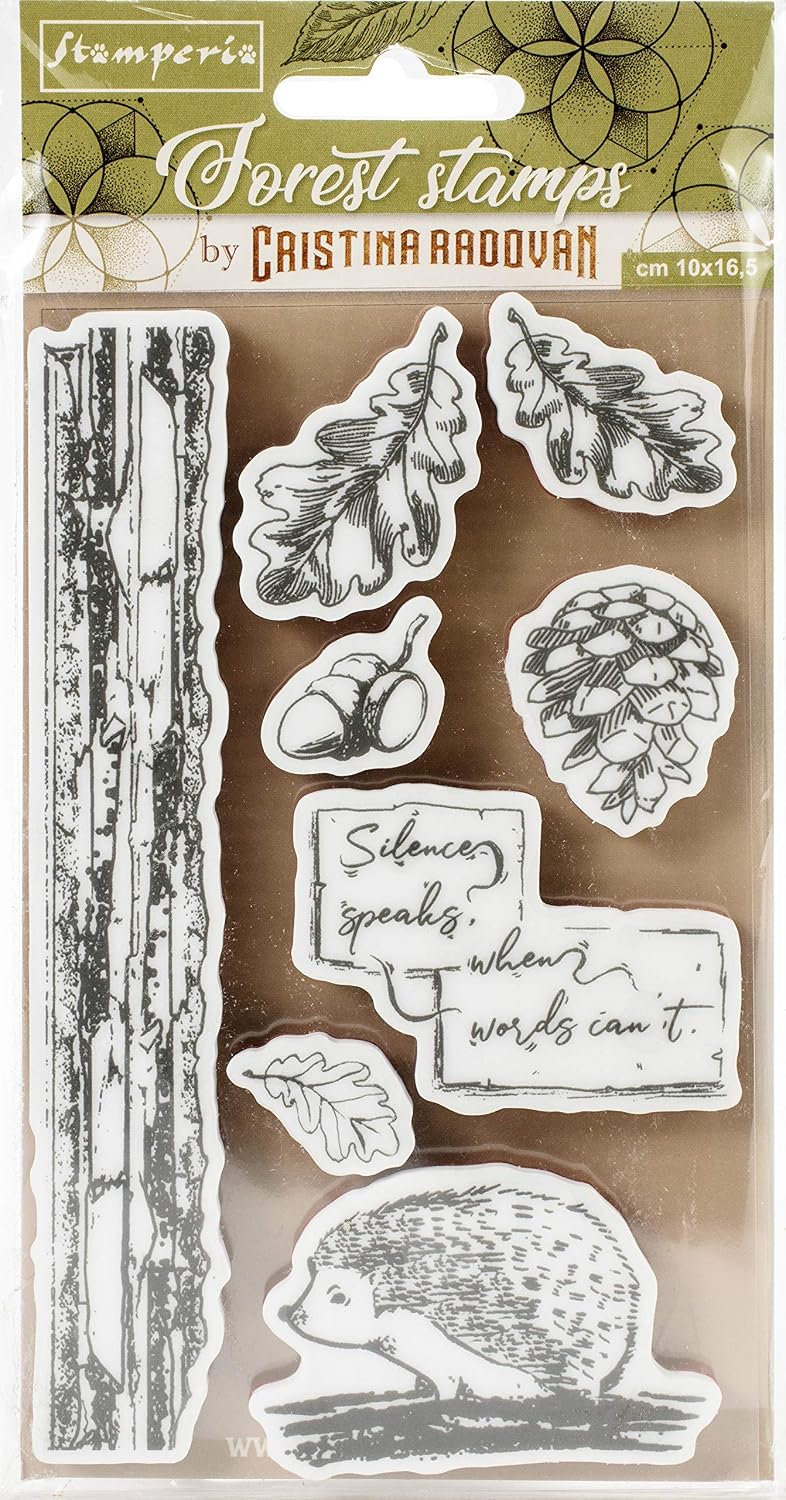 Stamperia
Forest stamps
by CRISTINA RADOVAN
cm 10x16,5
Silence
speaks,
when
words can't.
www.